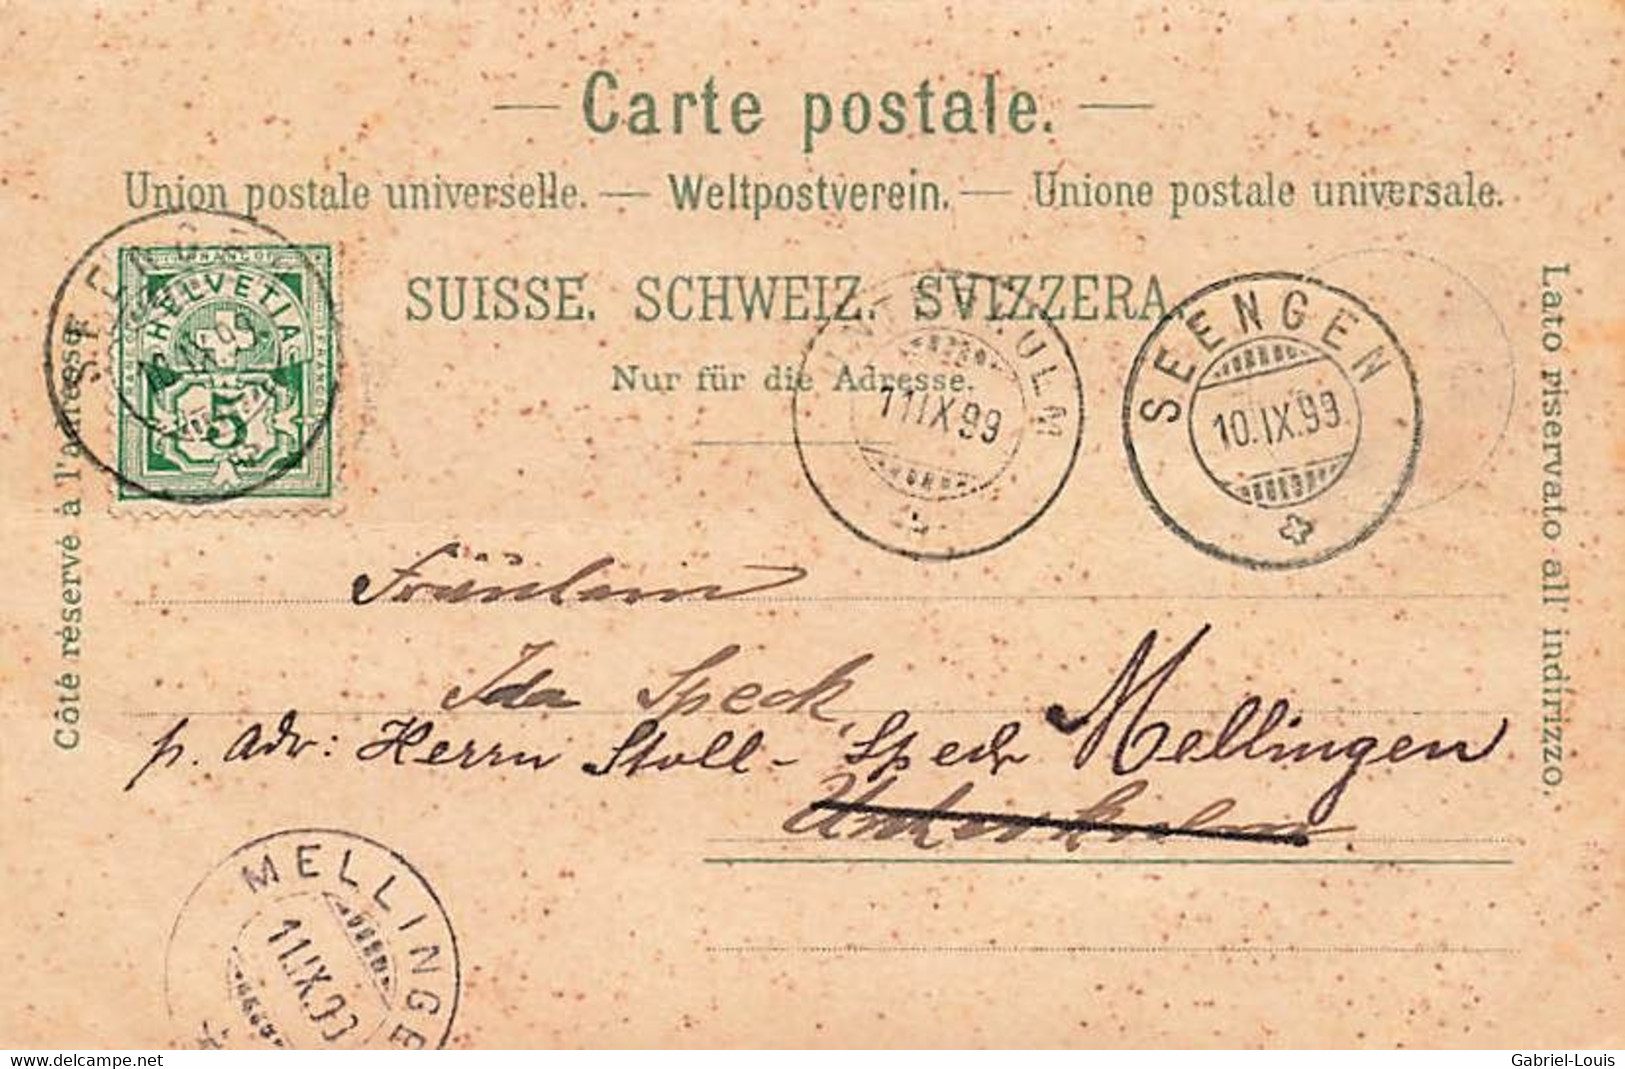 — Carte postale. —
Union postale universelle. — Weltpostverein. — Unione postale universale.
SUISSE. SCHWEIZ. SVIZZERA.
Nur für die Adresse.
Côté réservé à l'adresse.
Lato riservato all' indirizzo.
FRANCO
HELVETIA
5
SEENGEN
10.IX.99.
KULM
11 IX 99
SEENGEN
10.IX.99.
Fräulein
Ida Speck,
p. adr: Herrn Stoll-Speck Mellingen
Unterkulm.
MELLINGE
11.IX.99
delcampe.net
Gabriel-Louis